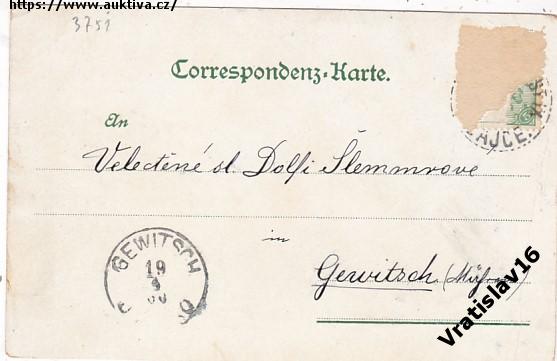 https://www.auktiva.cz/
3751
Correspondenz-Karte.
AJCE
An
Velectěné sl. Dolfi
GEWITSCH
19
9
00
in
Gewitsch
Vratislav16